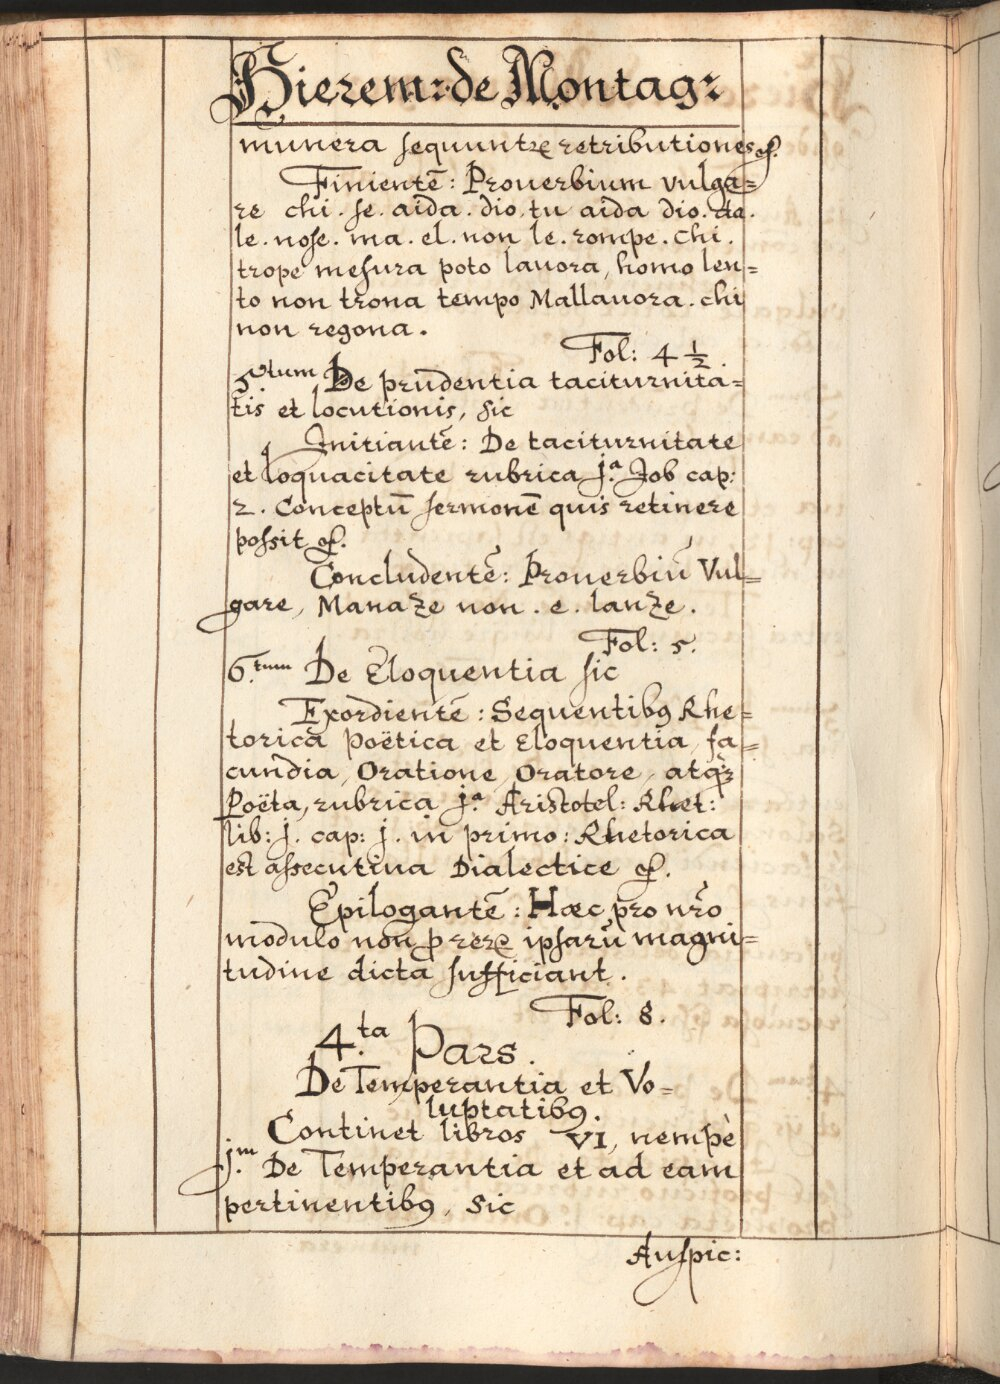 Hierem: de Montag:
munera sequuntr retributiones &.
Finientē: Prouerbium vulga=
re chi. se. aida. dio. tu aida dio. da.
le. nose. ma. el. non le. rompe. chi.
trope mesura poto lauora, homo len=
to non trona tempo Mallauora. chi
non regona.
Fol: 4 ½.
5tum De prudentia taciturnita=
tis et locutionis, sic
Initiantē: De taciturnitate
et loquacitate rubrica j.a Job cap:
2. Conceptū sermonē quis retinere
possit &.
Concludentē: Prouerbiū Vul=
gare, Manaze non. e. lanze.
Fol: 5.
6.tum De Eloquentia sic
Exordientē: Sequentib9 Rhe=
torica Poëtica et Eloquentia, fa=
cundia, Oratione, Oratore, atq;
Poëta, rubrica j.a Aristotel: Rhet:
lib: j. cap: j. in primo: Rhetorica
est assecutiua Dialectice &.
Epilogantē: Hæc pro nrō
modulo non ꝑ rerꝝ ipsarū magni=
tudine dicta sufficiant.
Fol: 8.
4.ta Pars.
De Temperantia et Vo=
luptatib9.
Continet libros VI, nempè
j.m De Temperantia et ad eam
pertinentib9, sic
Auspic: